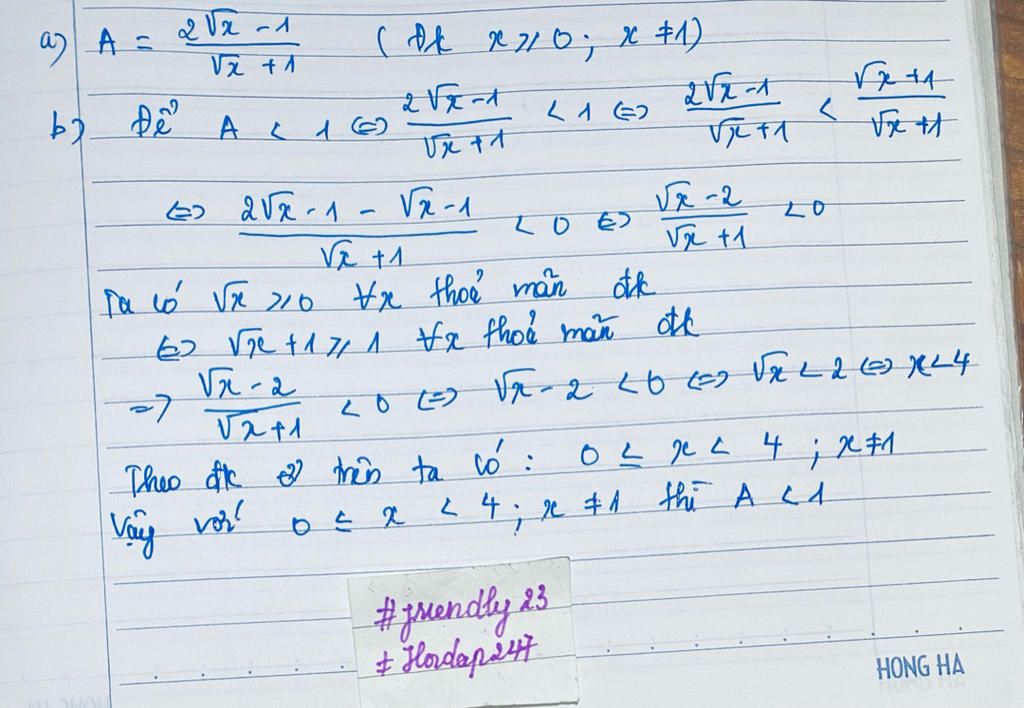 a) A = (2√x - 1)/(√x + 1) ( Đk x ≥ 0 ; x ≠ 1)
b) Để A < 1 ⇔ (2√x - 1)/(√x + 1) < 1 ⇔ (2√x - 1)/(√x + 1) < (√x + 1)/(√x + 1)
⇔ (2√x - 1 - √x - 1)/(√x + 1) < 0 ⇔ (√x - 2)/(√x + 1) < 0
Ta có √x ≥ 0 ∀x thoả mãn đk
⇔ √x + 1 ≥ 1 ∀x thoả mãn đk
⇒ (√x - 2)/(√x + 1) < 0 ⇔ √x - 2 < 0 ⇔ √x < 2 ⇔ x < 4
Theo đk ở trên ta có : 0 ≤ x < 4 ; x ≠ 1
Vậy với 0 ≤ x < 4 ; x ≠ 1 thì A < 1
#friendly23
# Hoidap247
HONG HA